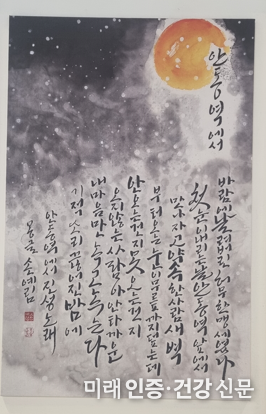 안동역에서
바람에 날려버린 허무한 맹세였나
첫눈이 내리는 날 안동역 앞에서
만나자고 약속한 사람 새벽
부터 오는 눈이 무릎까지 덮는데
안 오는 건지 못 오는 건지
오지 않는 사람아 안타까운
내 마음만 녹고 녹는다
기적 소리 끊어진 밤에
안동역에서 진성 노래
손예림
미래 인증·건강 신문